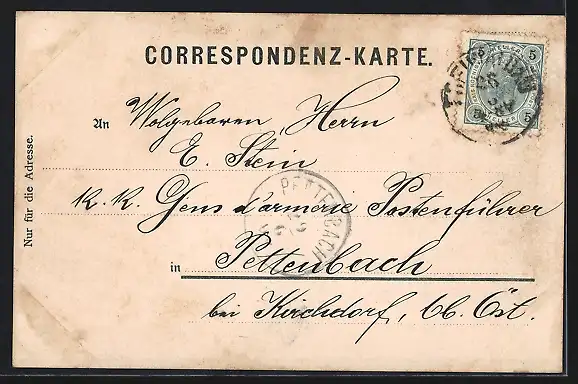 CORRESPONDENZ-KARTE.
An Wolgebaren Herrn
E. Stein
K. K. Gens d'armerie Postenführer
in Pettenbach
bei Kirchdorf, Ob. Öst.
Nur für die Adresse.
PETTENBACH
5 5